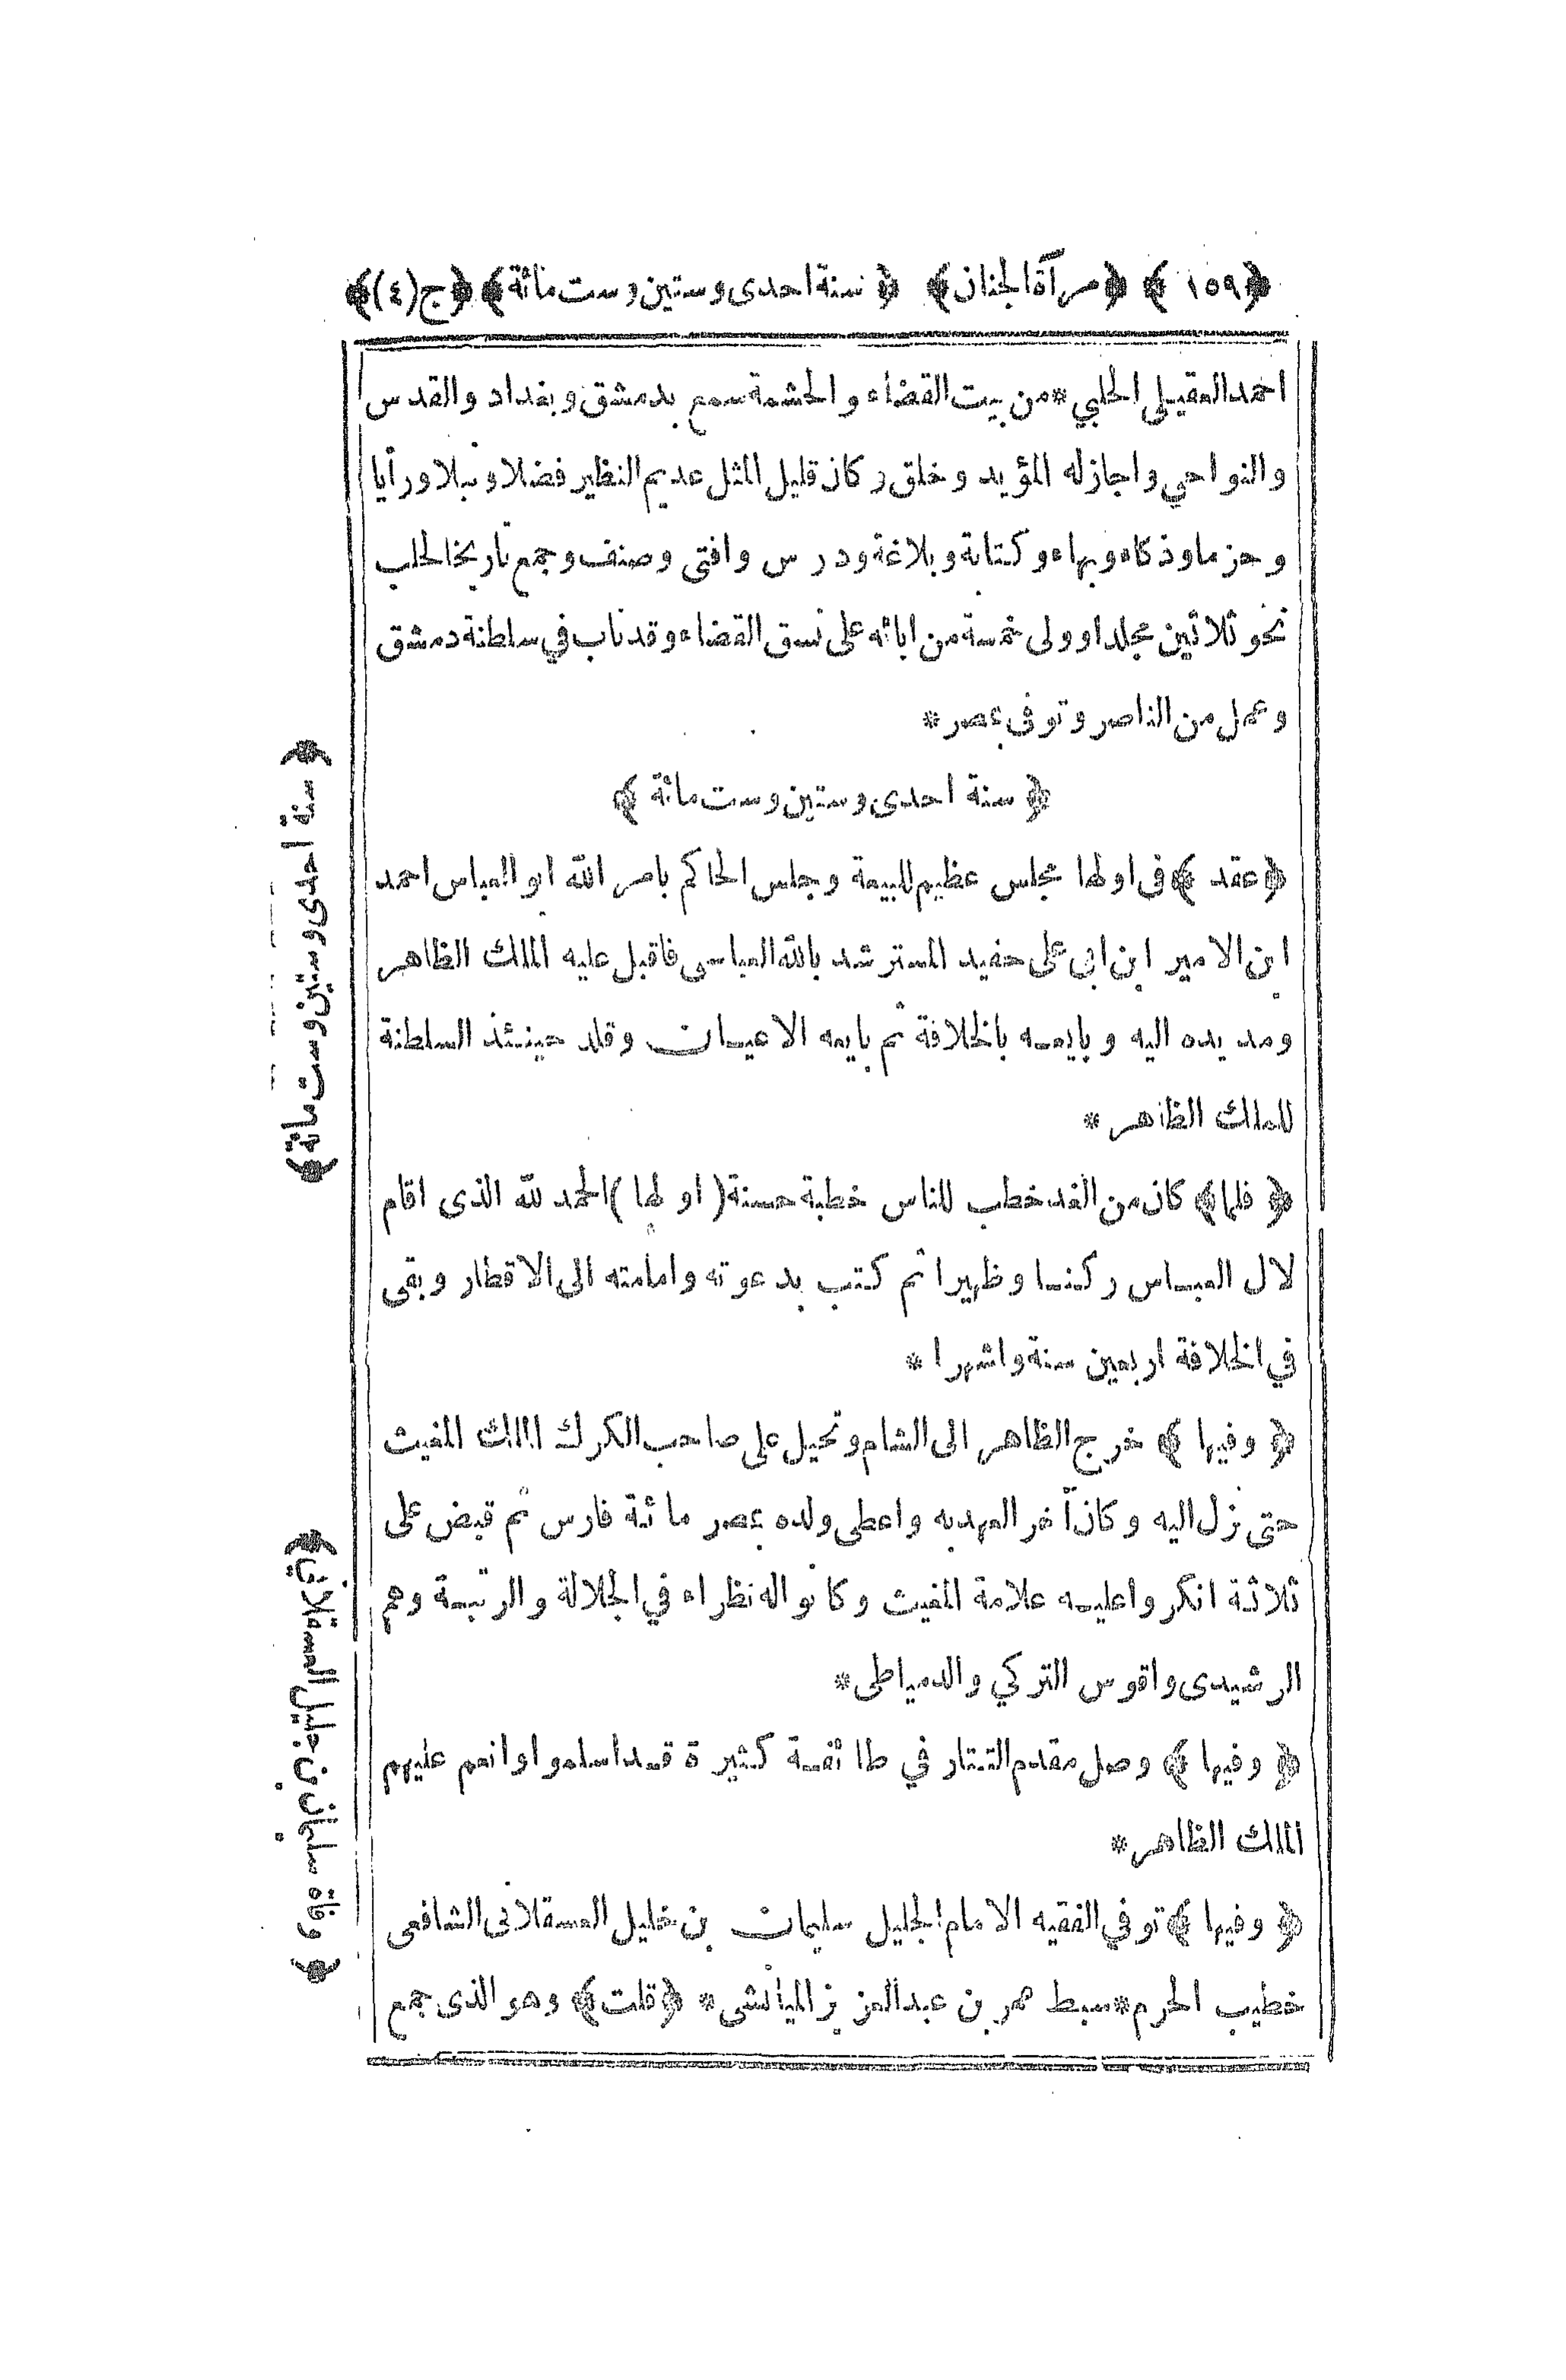 ﴿١٥٩﴾ ﴿مرآة الجنان﴾ ﴿سنة احدى وستين وست مائة﴾ ﴿ج(٤)﴾
احمد العقيلى الحلبي * من بيت القضاء والحشمة سمع بدمشق وبغداد والقدس
والنواحي واجاز له المؤيد وخلق وكان قليل المثل عديم النظير فضلا ونبلا ورأيا
وحزما وذكاء وبهاء وكتابة وبلاغة ودرس وافتى وصنف وجمع تاريخا لحلب
نحو ثلاثين مجلدا وولى خمسة من ابائه على نسق القضاء وقد ناب في سلطنة دمشق
وعمل من الناصر وتوفى بمصر *
﴿سنة احدى وستين وست مائة﴾
﴿عقد﴾ فى اولها مجلس عظيم للبيعة وجلس الحاكم بامر الله ابو العباس احمد
ابن الامير ابن ابى على حفيد المسترشد بالله العباسى فاقبل عليه الملك الظاهر
ومد يده اليه وبايعه بالخلافة ثم بايعه الاعيان وقلد حينئذ السلطنة
للملك الظاهر *
﴿فلما﴾ كان من الغد خطب للناس خطبة حسنة (اولها) الحمد لله الذى اقام
لال العباس ركنا وظهيرا ثم كتب بدعوته وامامته الى الاقطار وبقى
في الخلافة اربعين سنة واشهرا *
﴿وفيها﴾ خرج الظاهر الى الشام وتحيل على صاحب الكرك الملك المغيث
حتى نزل اليه وكان آخر العهد به واعطى ولده بمصر مائة فارس ثم قبض على
ثلاثة انكروا عليه علامة المغيث وكانوا له نظراء في الجلالة والرتبة وهم
الرشيدى واقوس التركي والدمياطى *
﴿وفيها﴾ وصل مقدم التتار في طائفة كثيرة قد اسلموا وانعم عليهم
الملك الظاهر *
﴿وفيها﴾ توفي الفقيه الامام الجليل سليمان بن خليل العسقلانى الشافعى
خطيب الحرم * سبط عمر بن عبد العزيز الميانشى * ﴿قلت﴾ وهو الذى جمع
﴿سنة احدى وستين وست مائة﴾
﴿وفاة سليمان بن خليل العسقلاني﴾